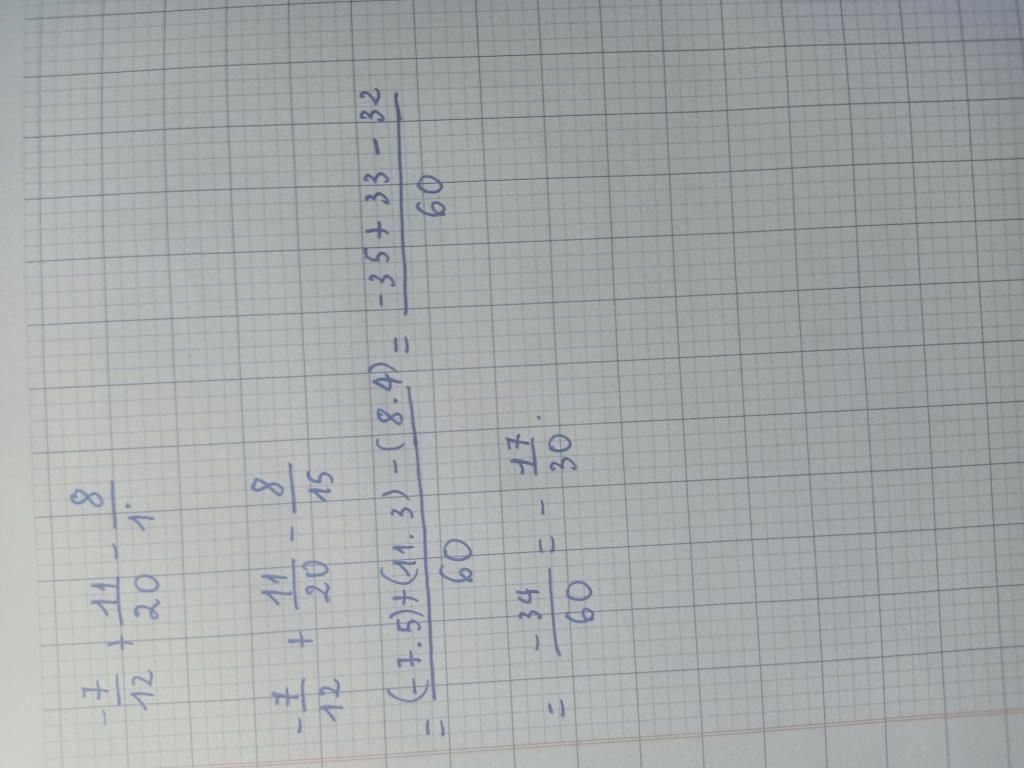 - 7/12 + 11/20 - 8/1.
- 7/12 + 11/20 - 8/15
= (-7.5)+(11.3)-(8.4)/60 = -35+33-32/60
= -34/60 = - 17/30.